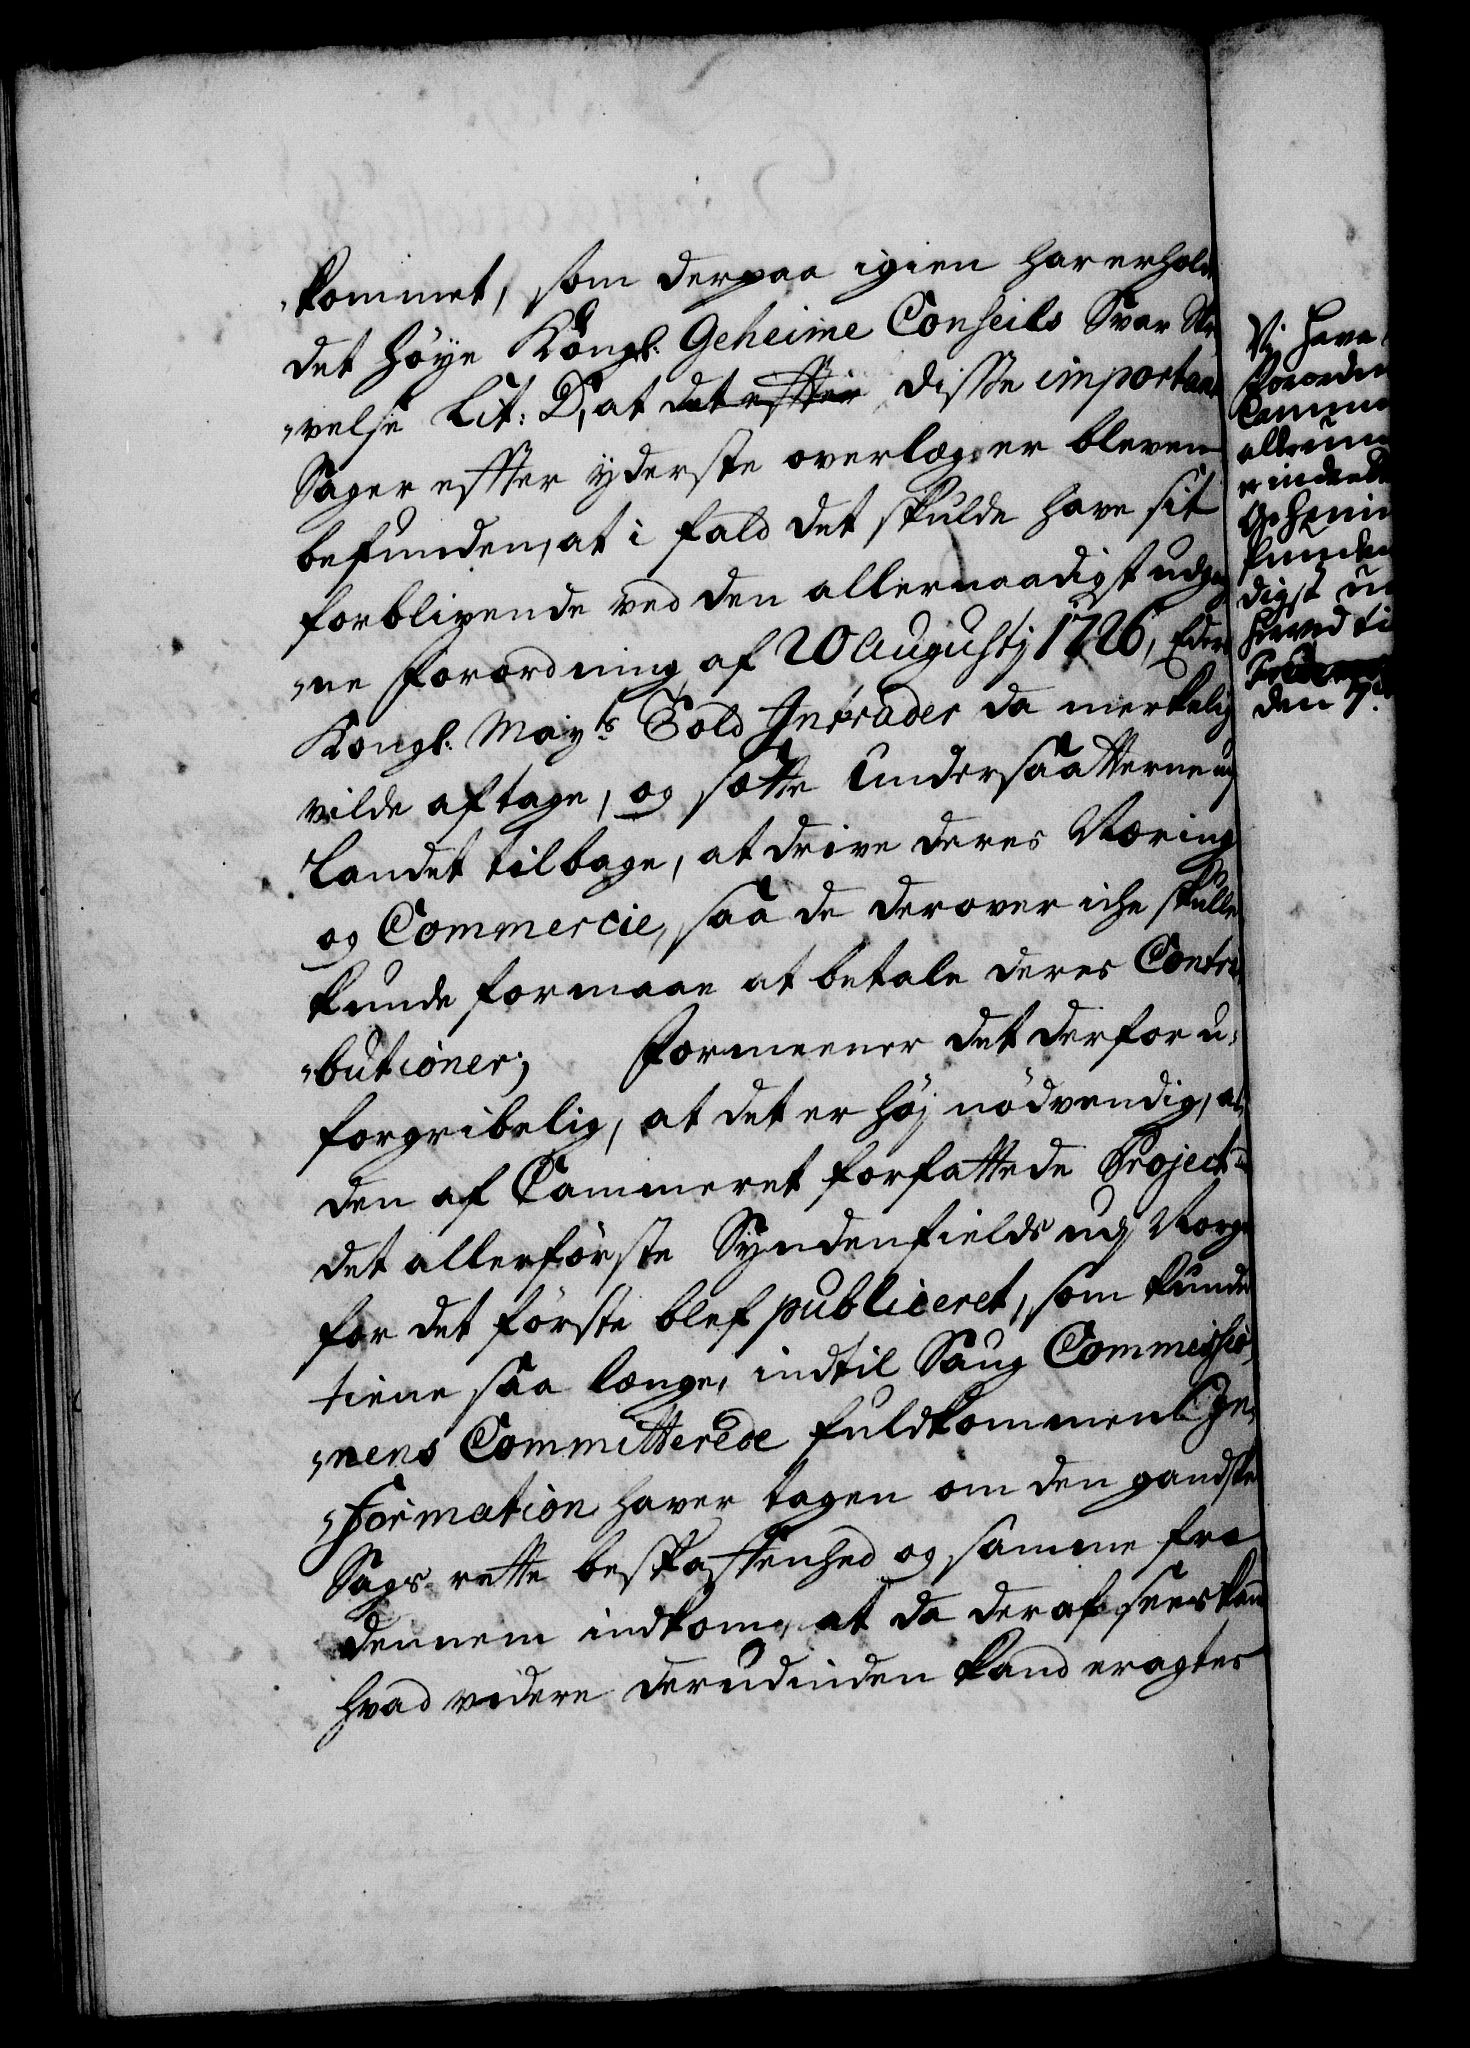 „kommet, som derpaa igien har erholdt
det høye Kongl: Geheime Conseils Svar Skri„
„velse Lit: D, at det effter disse importante
Sager effter yderste overlæg er bleven
befunden, at i fald det skulde have sit
forblivende ved den allernaadigst udgag„
„ne Forordning af 20 Augustj 1726, Eders
Kongl: Mayts Told Intrader da merkelig
vilde aftage, og sætte Undersaatterne udj
Landet tilbage, at drive deres Næring
og Commercie, saa de derover iche skulle
kunde formaae at betale deres Contri„
„butioner; Formeener det derfor u„
forgribelig, at det er høj nødvendig, at
den af Cammeret forfattede Project
det allerførste Syndenfields udj Norge
for det første blef publiceret, som kunde
tiene saa længe, indtil Saug Commissio„
„nens Committerede fuldkommen In„
„formation haver tagen om den gandske
Sags rette beskaffenhed og samme fra
dennem indkom, at da deraf sees kand
hvad videre derudinden kand eragtes
Vj have
Forordn
Camme
allerun
erinded
Geheim
kunde
digst
herved ti
Friderichs
den 7.